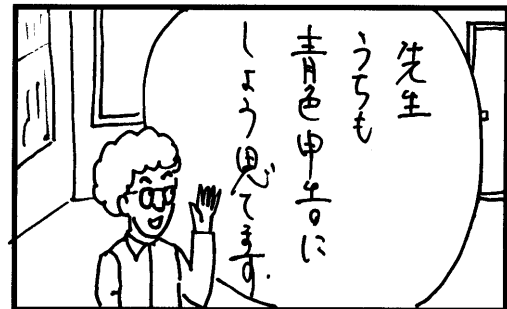 先生
うちも
青色申告に
しよう思てます.